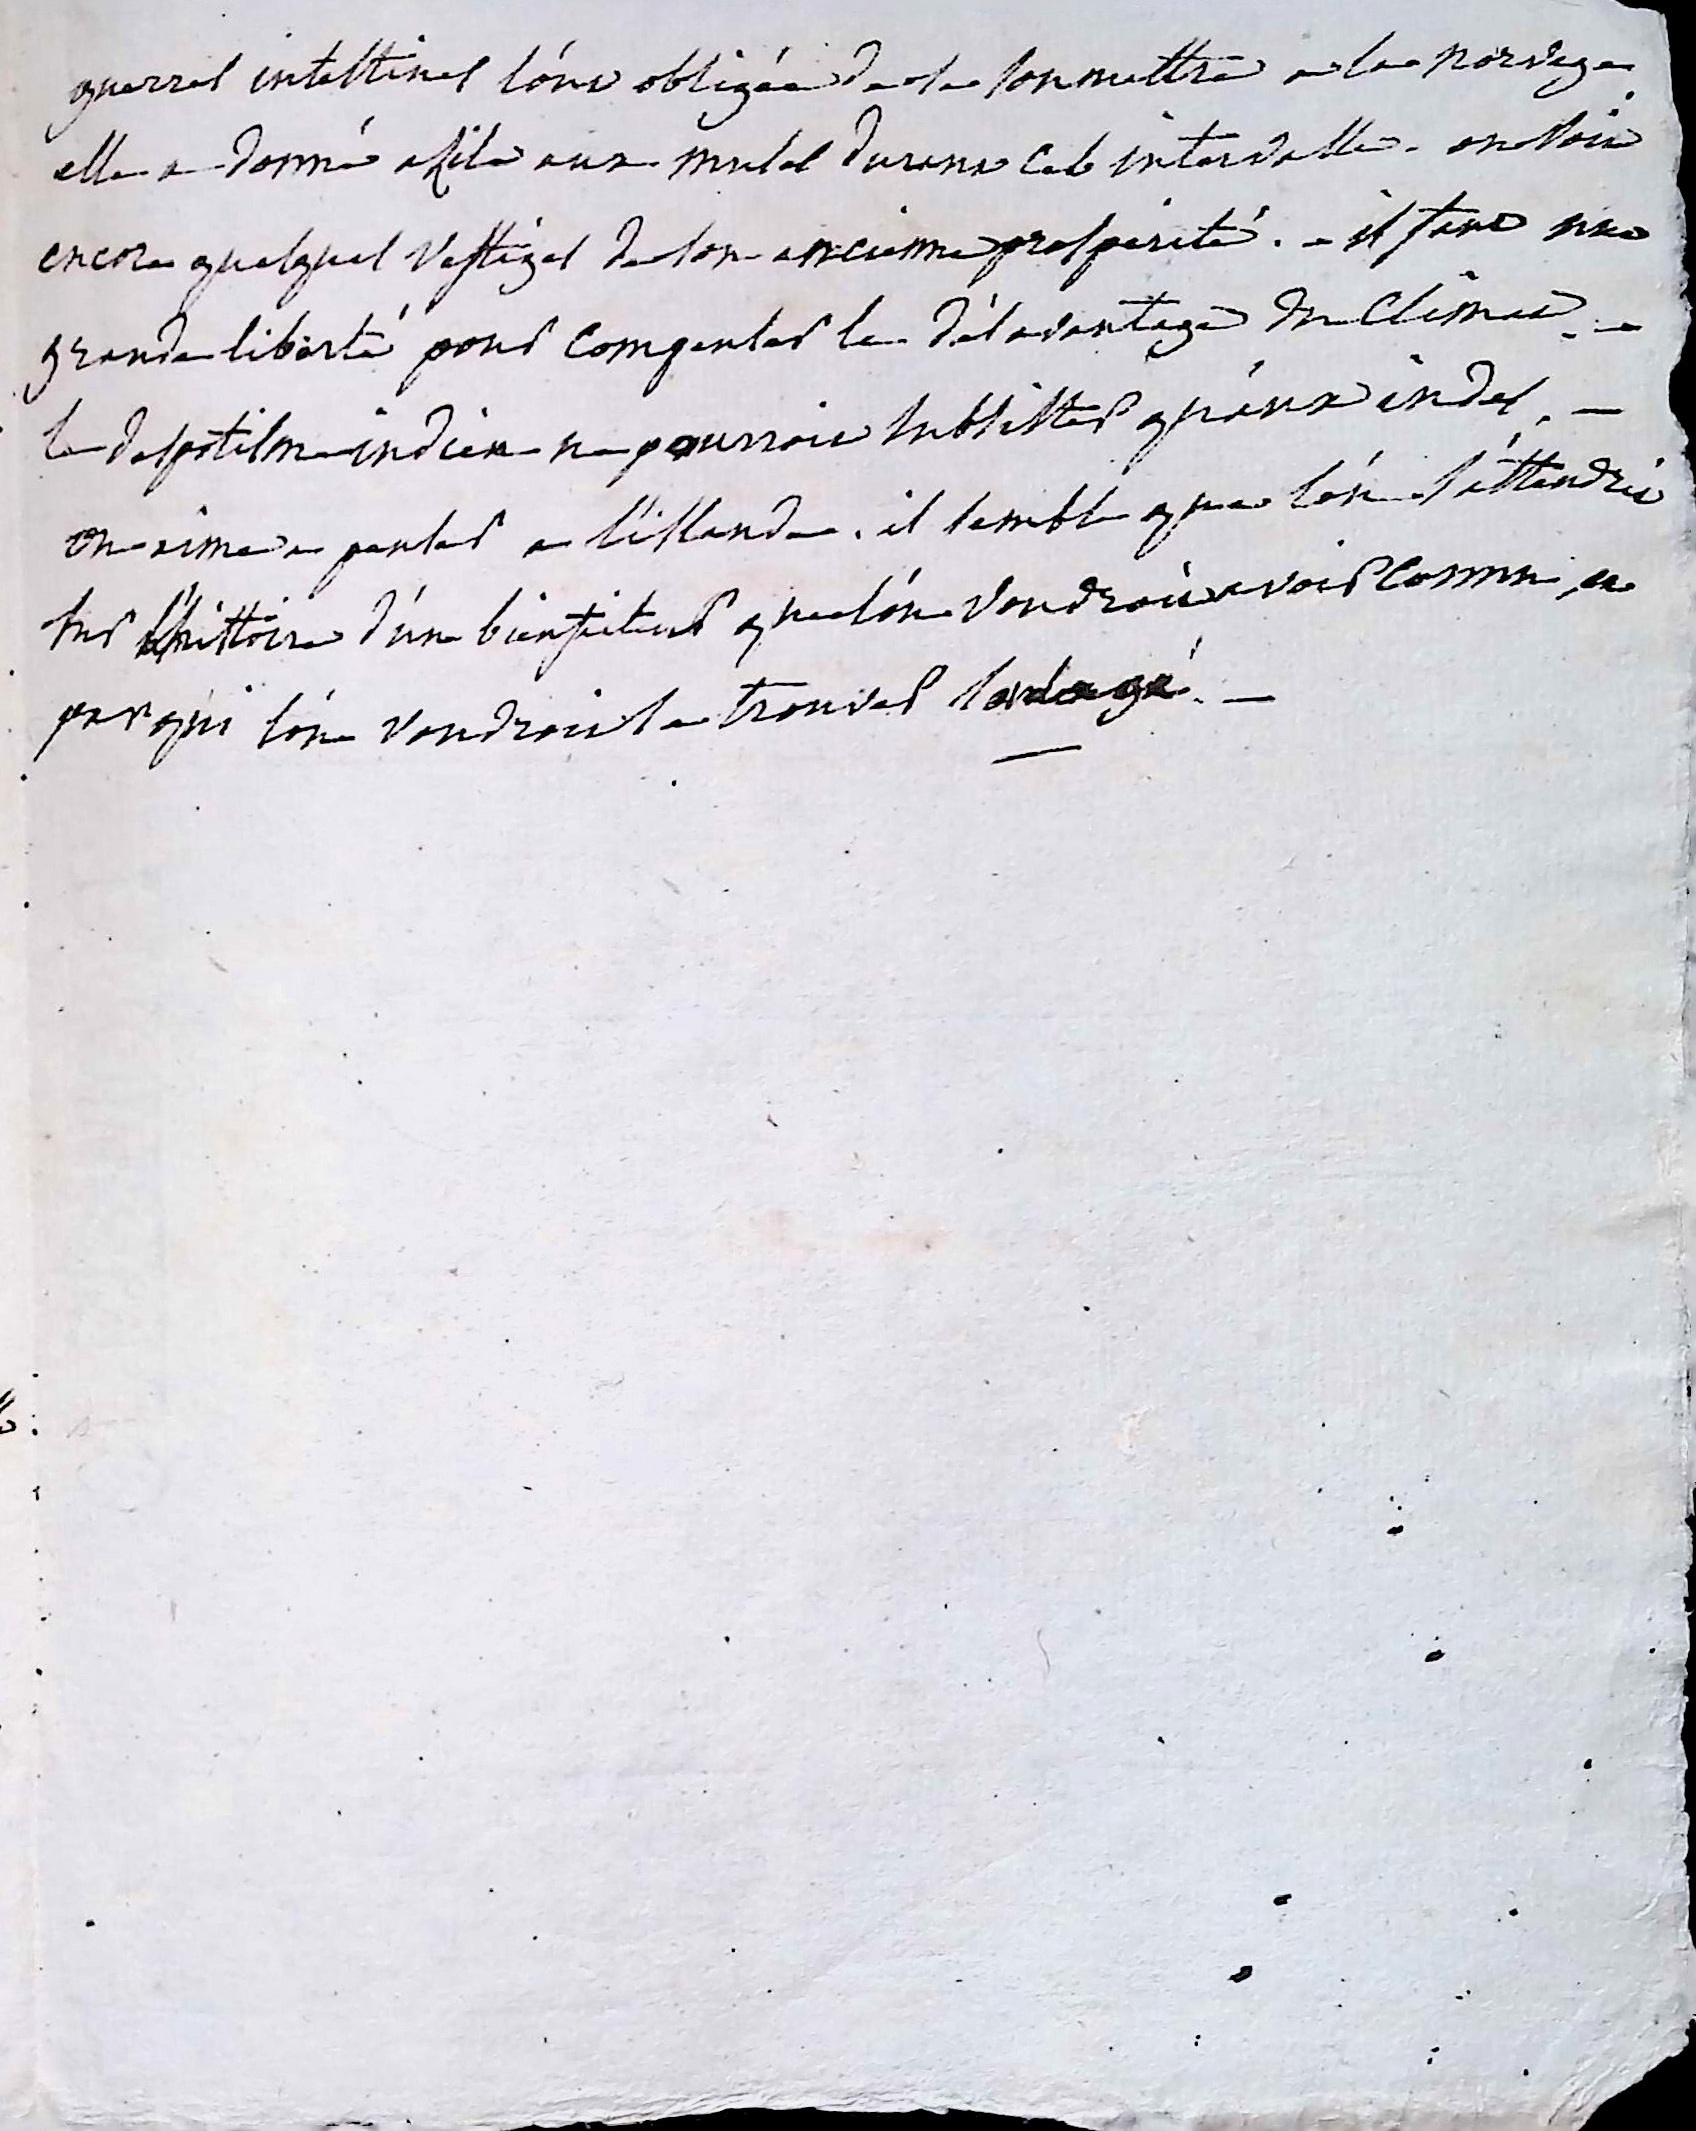 guerres intestines l'ont obligée de se soumettre a la norvege
elle a donné asile aux muses durant cet intervalle. on voit
encore quelques vestiges de son ancienne prosperité. - il faut une
grande liberté pour compenser le désavantage du climat. -
le despotisme indien ne pourroit subsister qu'aux indes. -
on aime a penser a l'islande. il semble que l'on s'attendrit
sur l'histoire d'un bienfaiteur que l'on voudroit avoir connu, et
par qui l'on voudroit se trouver soulagé. -